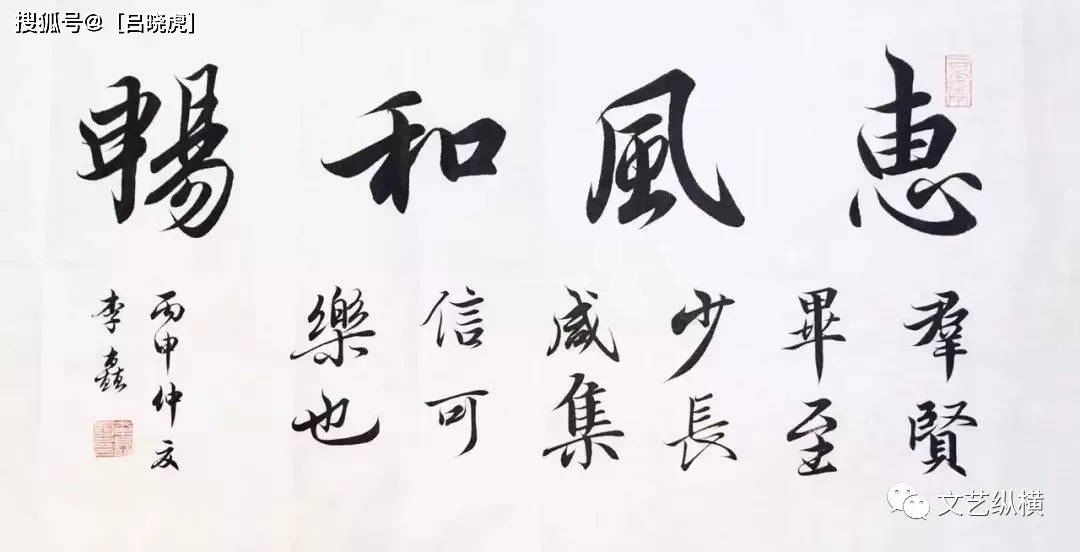 搜狐号@［吕晓虎］
惠風和暢
羣賢
畢至
少長
咸集
信可
樂也
丙申仲夏
李
文艺纵横